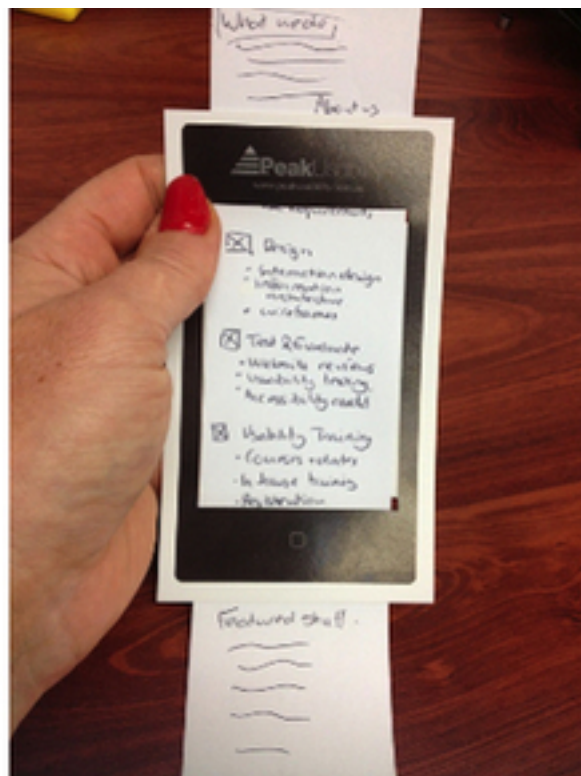 What we do
About us
PeakUsability
Requirements,
Design
- Interaction design
- Information
architecture
• wireframes
Test & Evaluate
• Website reviews
- Usability testing
- Accessibility audit
Usability Training
- Courses + dates
- In house training
- Registration
Featured stuff.